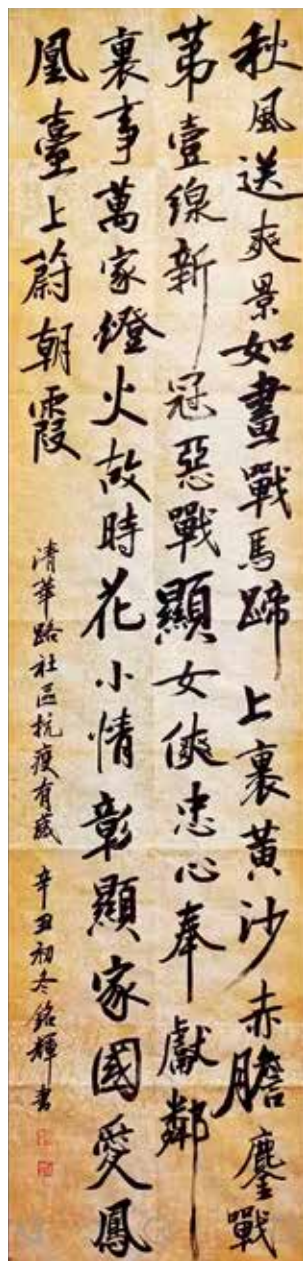 秋風送爽景如畫戰馬蹄上裹黃沙赤膽鏖戰
苐壹線新冠惡戰顯女俠忠心奉獻鄰
裏事萬家鐙火故時花小情彰顯家國愛鳳
凰臺上蔚朝霞
清華路社區抗疫有感 辛丑初冬銘輝書